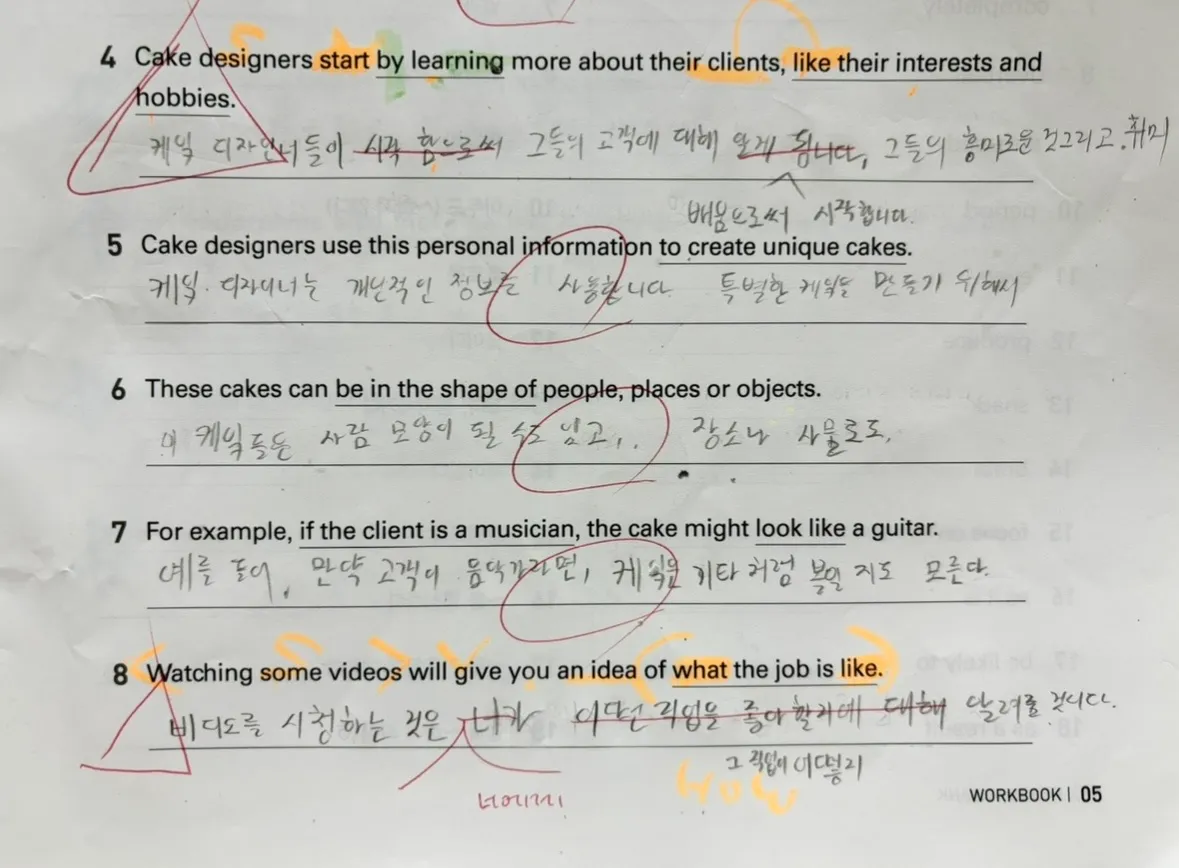 4 Cake designers start by learning more about their clients, like their interests and
hobbies.
케잌 디자인너들이 시작 함으로써 그들의 고객에 대해 알게 됩니다, 그들의 흥미로운 것그리고 취미
배움으로써 시작합니다.
5 Cake designers use this personal information to create unique cakes.
케잌 디자이너는 개인적인 정보를 사용합니다. 특별한 케잌을 만들기 위해서
6 These cakes can be in the shape of people, places or objects.
이 케잌들은 사람 모양이 될 수도 있고, 장소나 사물로도.
7 For example, if the client is a musician, the cake might look like a guitar.
예를 들어, 만약 고객이 음악가라면, 케잌은 기타 처럼 보일 지도 모른다.
8 Watching some videos will give you an idea of what the job is like.
비디오를 시청하는 것은 너가 어떤 직업을 좋아할거에 대해 알려줄 것니다.
그 직업이 어떻지
너에게
HOW
WORKBOOK | 05